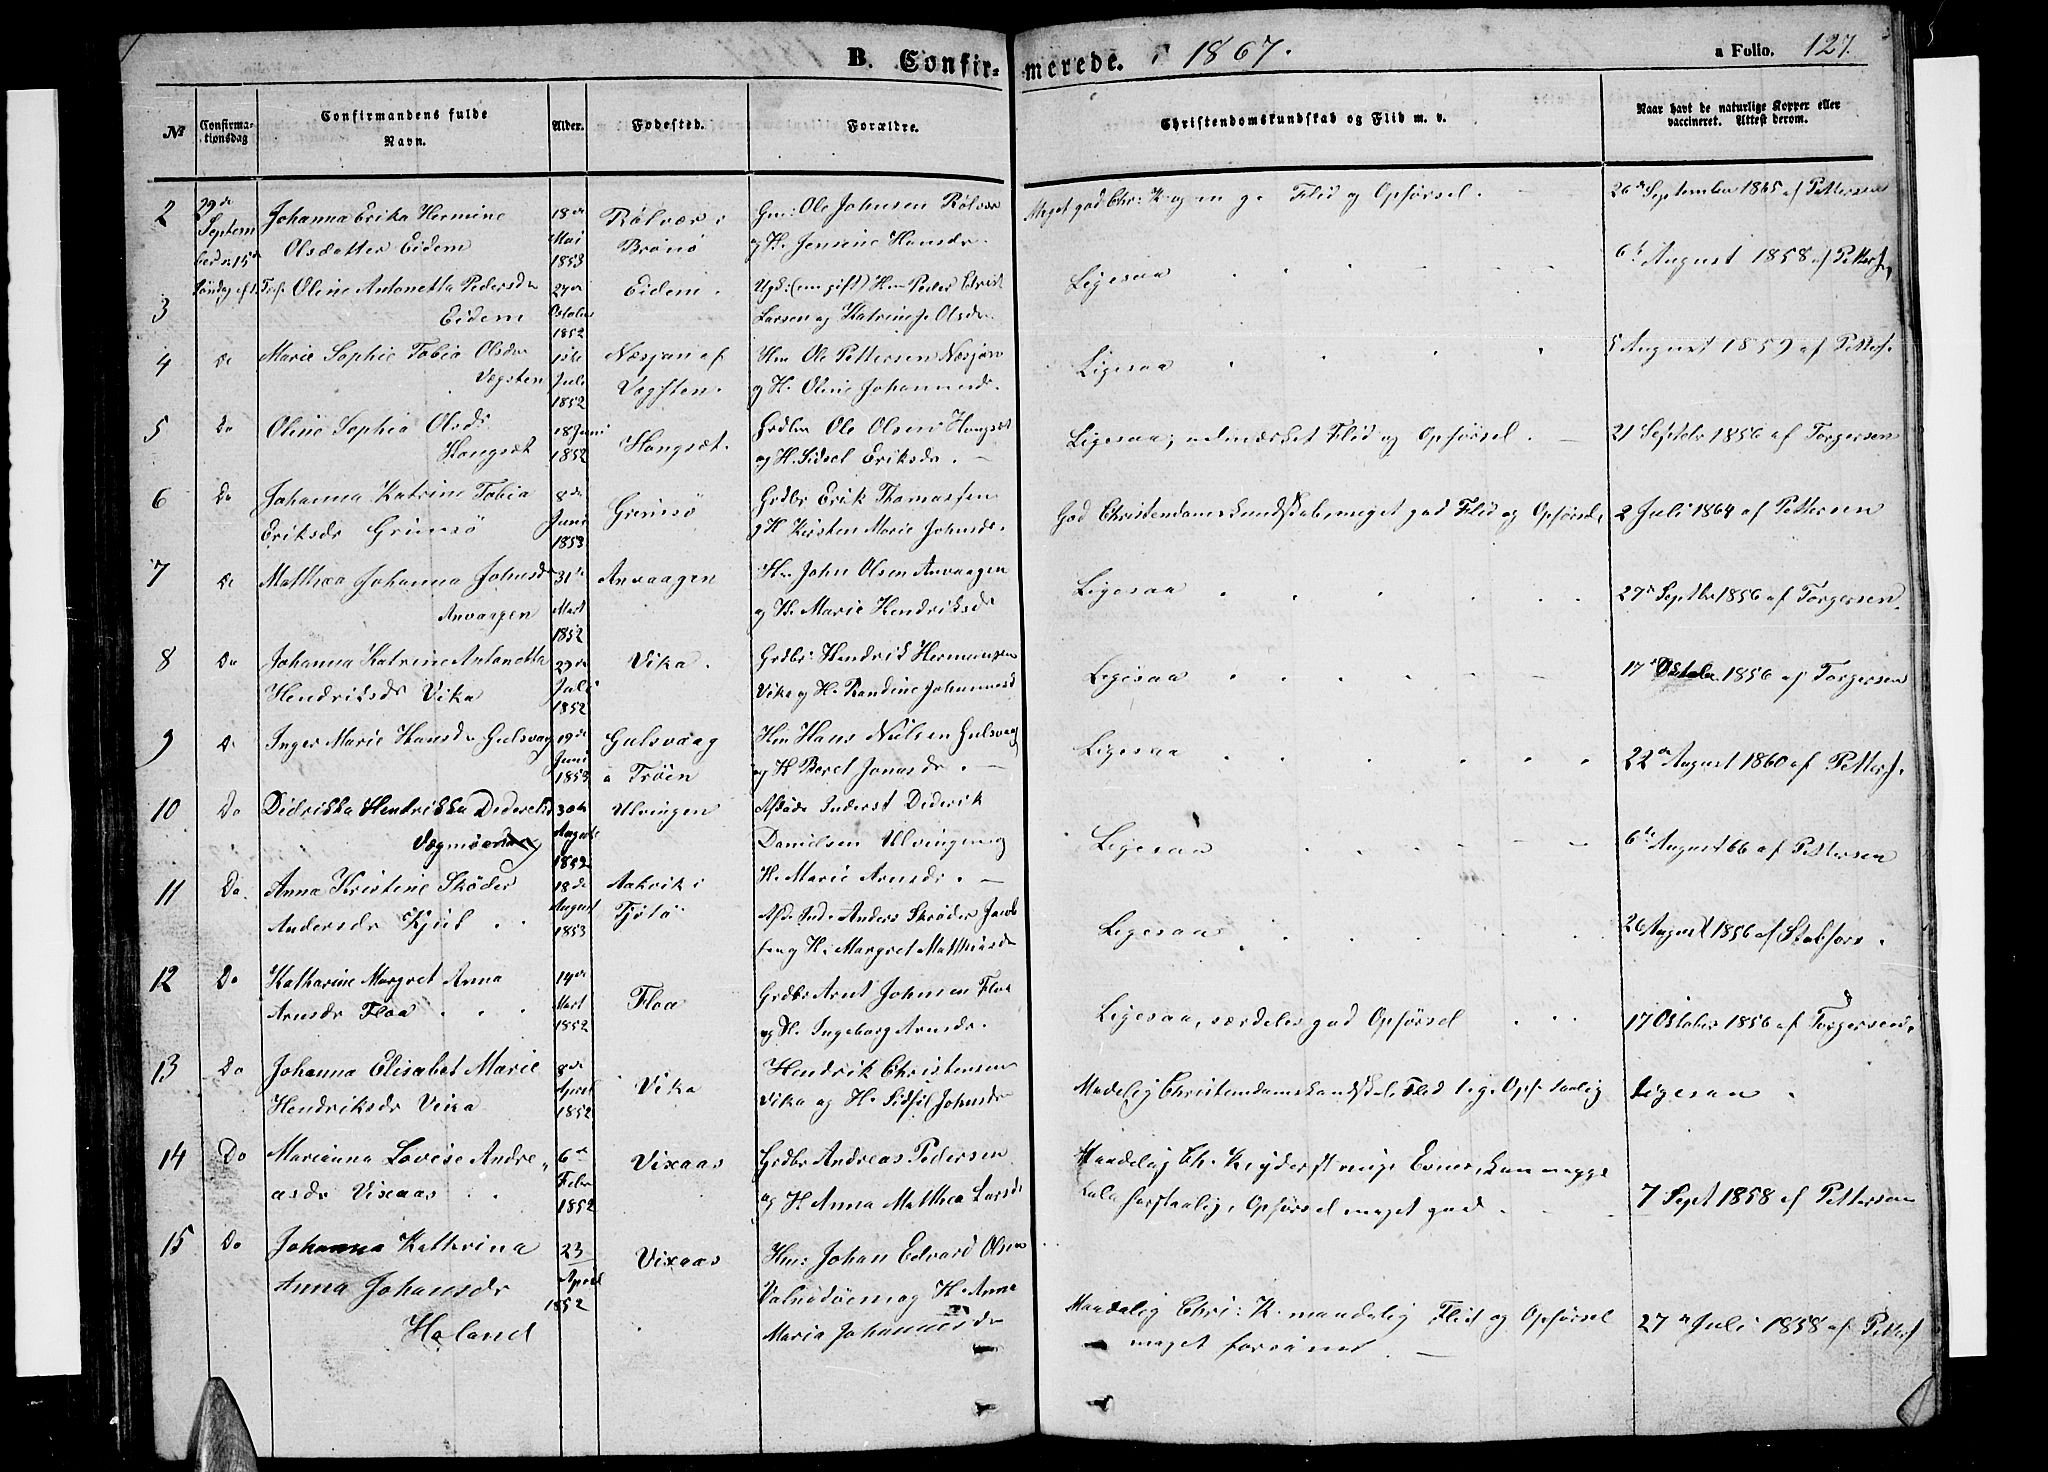 B. Confir-
merede. 1867.
a Folio. 127.
№
Confirma-
tionsdag
Confirmandens fulde
Navn.
Alder.
Fødested.
Forældre.
Christendomskundskab og Flid m. v.
Naar havt de naturlige Kopper eller
vaccineret. Attest derom.
2
29de
Septem
Johanna Erika Hermine
Olsdatter Eidem
18de
Mai
1853
Rølvær i
Brønø
Gm: Ole Johnsen Rølvær
og H. Jensine Hansdr.
Meget god Chr: K. og m g. Flid og Opførsel.
26de September 1865 af Pettersen
3
Oline Antonetta Pedersdr
Eidem
24de
October
1852
Eidem.
Larsen og Katrine J. Olsdr
Ligesaa
6te August 1858 af Petters.
4
Do
Marie Sophie Tobia Olsdr
Vægsten
1ste
Juli
1852
Næsjan af
Vægsten.
Hm Ole Pettersen Næsjan
og H. Oline Johannesdr.
Ligesaa
5 August 1859 af Petters.
5
Do
Oline Sophia Olsdr
Hongsæt
18 Juni
1852
Hongsæt.
Grdbr Ole Olsen Hongsæt
og H. Sidsel Eriksdr.
Ligesaa, udmærket Flid og Opførsel.
21 Septbr 1856 af Torgersen
6
Do
Johanna Katrine Tobia
Eriksdr Grimsø
8de
Juni
1853
Grimsø
Grdbr Erik Thomassen
og H Kirsten Marie Johnsdr.
God Christendomskundskab, meget god Flid og Opførsel,
2 Juli 1864 af Pettersen
7
Do
Matthea Johanna Johnsdr
Anvaagen
31te
Mart
1852
Anvaagen
Hm John Olsen Anvaagen
og H. Marie Hendriksdr
Ligesaa
27de Septbr 1856 af Torgersen.
8
Do
Johanna Katrine Antonetta
Hendriksdr Vika
29de
Juli
1852
Vika.
Grdbr: Hendrik Hermansen
Vika og H. Randine Johannesd
Ligesaa
17de Octobr 1856 af Torgersen
9
Do
Inger Marie Hansdr Gulsvaag
19de
Juni
1853
Gulsvaag
a Trøen
Hm Hans Nilsen Gulsvaag
og H Beret Jonasdr.
Ligesaa
22de August 1860 af Petters.
10
Do
Didrikka Hendrikka
30te
August
1852
Ulvingen
Afdøde Inderst Dederik
Danielsen Ulvingen og
H. Marie Arnsdr.
Ligesaa
6te August 66 af Pettersen
11
Do.
Anna Kristine Skøder
Andersdr
18de
August
1853
Aakvik i
Tjøtø
Afd. Ind. Anders Skrøder Jacob
sen og H. Margret Matthiasdr
Ligesaa
26 August 1856 af Stabfors.
12
Do
Katharine Margret Anna
Arnsdr Floa
14de
Mart
1852
Floa
Grdbr Arnt Johnsen Floa
og H. Ingeborg Arnsdr.
Ligesaa, særdeles god Opførsel
17 October 1856 af Torgersen.
13
Do
Johanna Elisabet Marie
Hendriksdr Vika
8de
April
1852
Vika
Hendrik Christensen
Vika og H. Sidsil Johnsdr
Maadelig Christendomskundskab, Flid lige, Opf. taalig
Ligesaa
14
Do
Marianna Lovise Andre
asdr Vixaas
6te
Febr
1852
Vixaas
Grdbr Andreas Pedersen
og H. Anna Mathea Larsdr
Maadelig Ch. K.
Opførsel meget god.
7 Sept 1858 af Pettersen
15
Do
Johanna Kathrina
Anna Johansdr
Høland
23
April
1852
Vixaas
Hm: Johan Edvard Olsen
og H. Anna
Maria Johannesdr
Maadelig Chri: K. maadelig Flid og Opførsel
meget
27de Juli 1858 af Petters